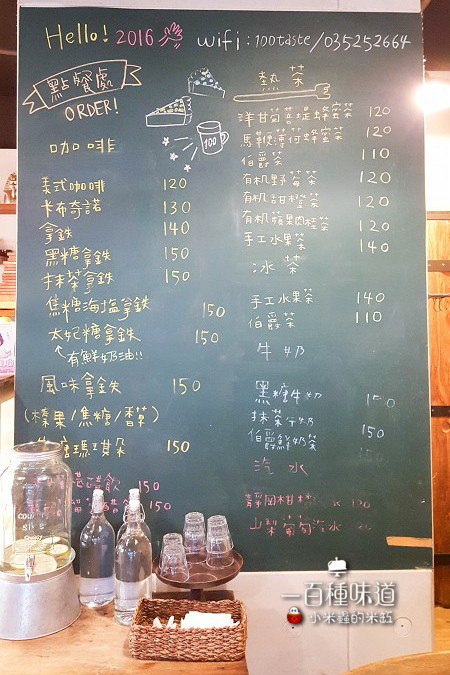 Hello! 2016
wifi: 100taste/035252664
點餐處
ORDER!
100
咖啡
美式咖啡 120
卡布奇諾 130
拿鐵 140
黑糖拿鐵 150
抹茶拿鐵 150
焦糖海塩拿鐵 150
太妃糖拿鐵 150
↑有鮮奶油!!
風味拿鐵 150
(榛果/焦糖/香草)
糖瑪琪朵 150
150
150
熱茶
洋甘菊菩提蜂蜜茶 120
馬鞭薄荷蜂蜜茶 120
伯爵茶 110
有机野莓茶 120
有机甜橙茶 120
有机蘋果肉桂茶 120
手工水果茶 140
冰茶
手工水果茶 140
伯爵茶 110
牛奶
黑糖牛奶
抹茶牛奶 150
伯爵鮮奶茶
汽水
山梨葡萄汽水
一百種味道
小米蟲的米缸